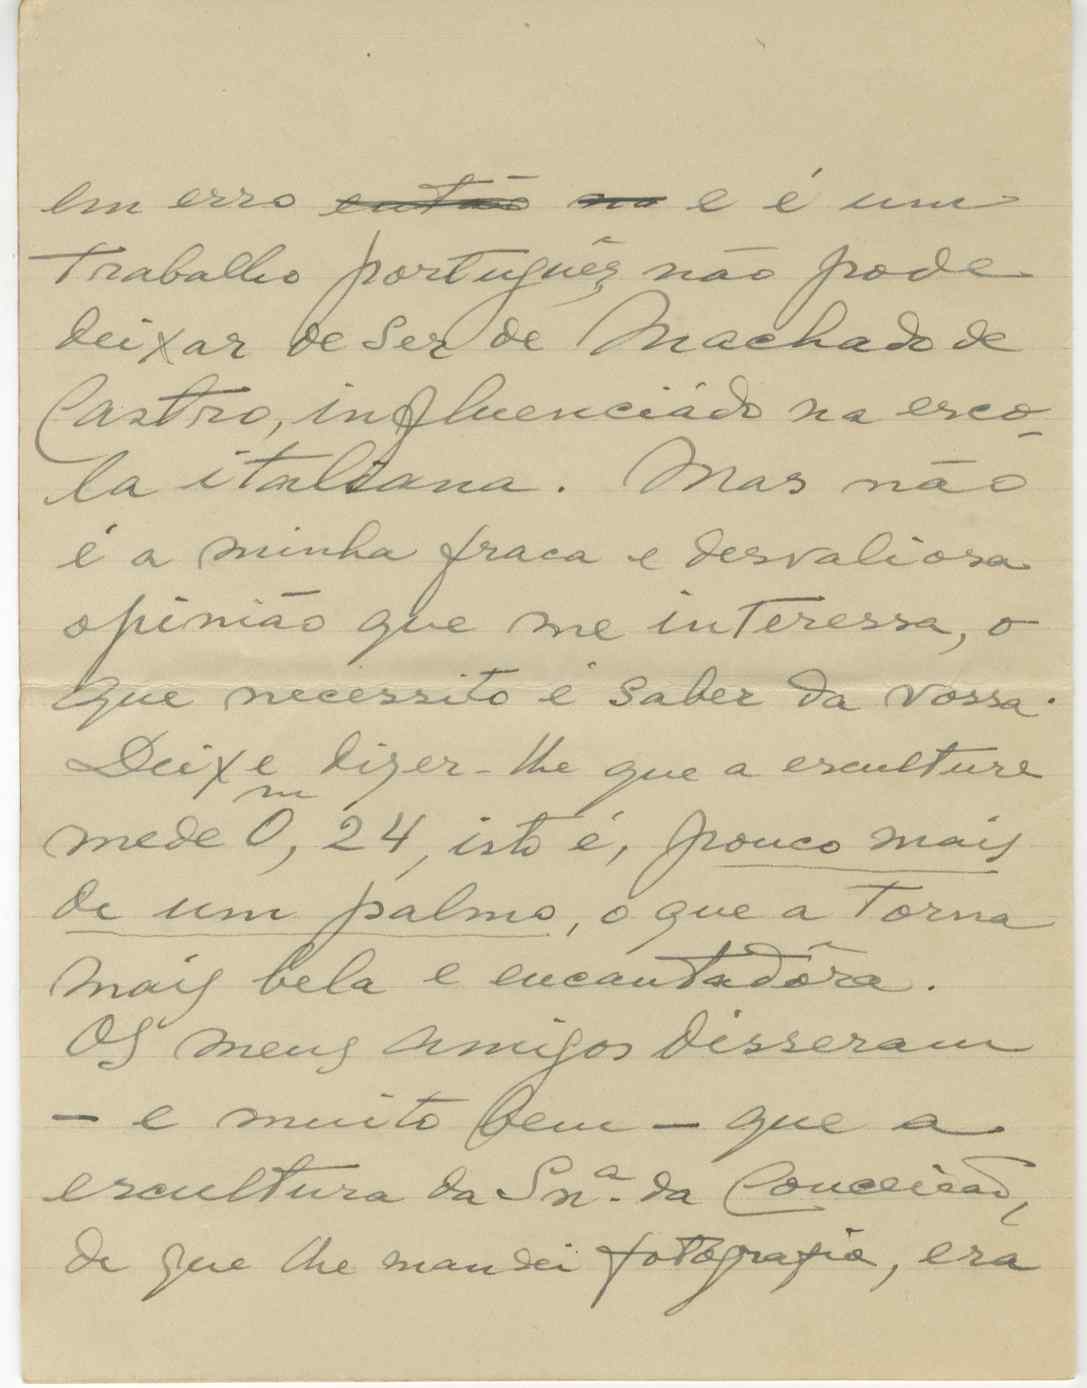 em erro então no e é um
trabalho português, não pode
deixar de ser de Machado de
Castro, influenciádo na esco-
la italiana. Mas não
é a minha fraca e desvaliosa
opinião que me interessa, o
que necessito é saber da vossa.
Deixe dizer-lhe que a esculture
mede 0,m24, isto é, pouco mais
de um palmo, o que a torna
mais bela e encantadôra.
Os meus amigos disseram
– e muito bem – que a
escultura da Snª. da Conceicão,
de que lhe mandei fotografia, era